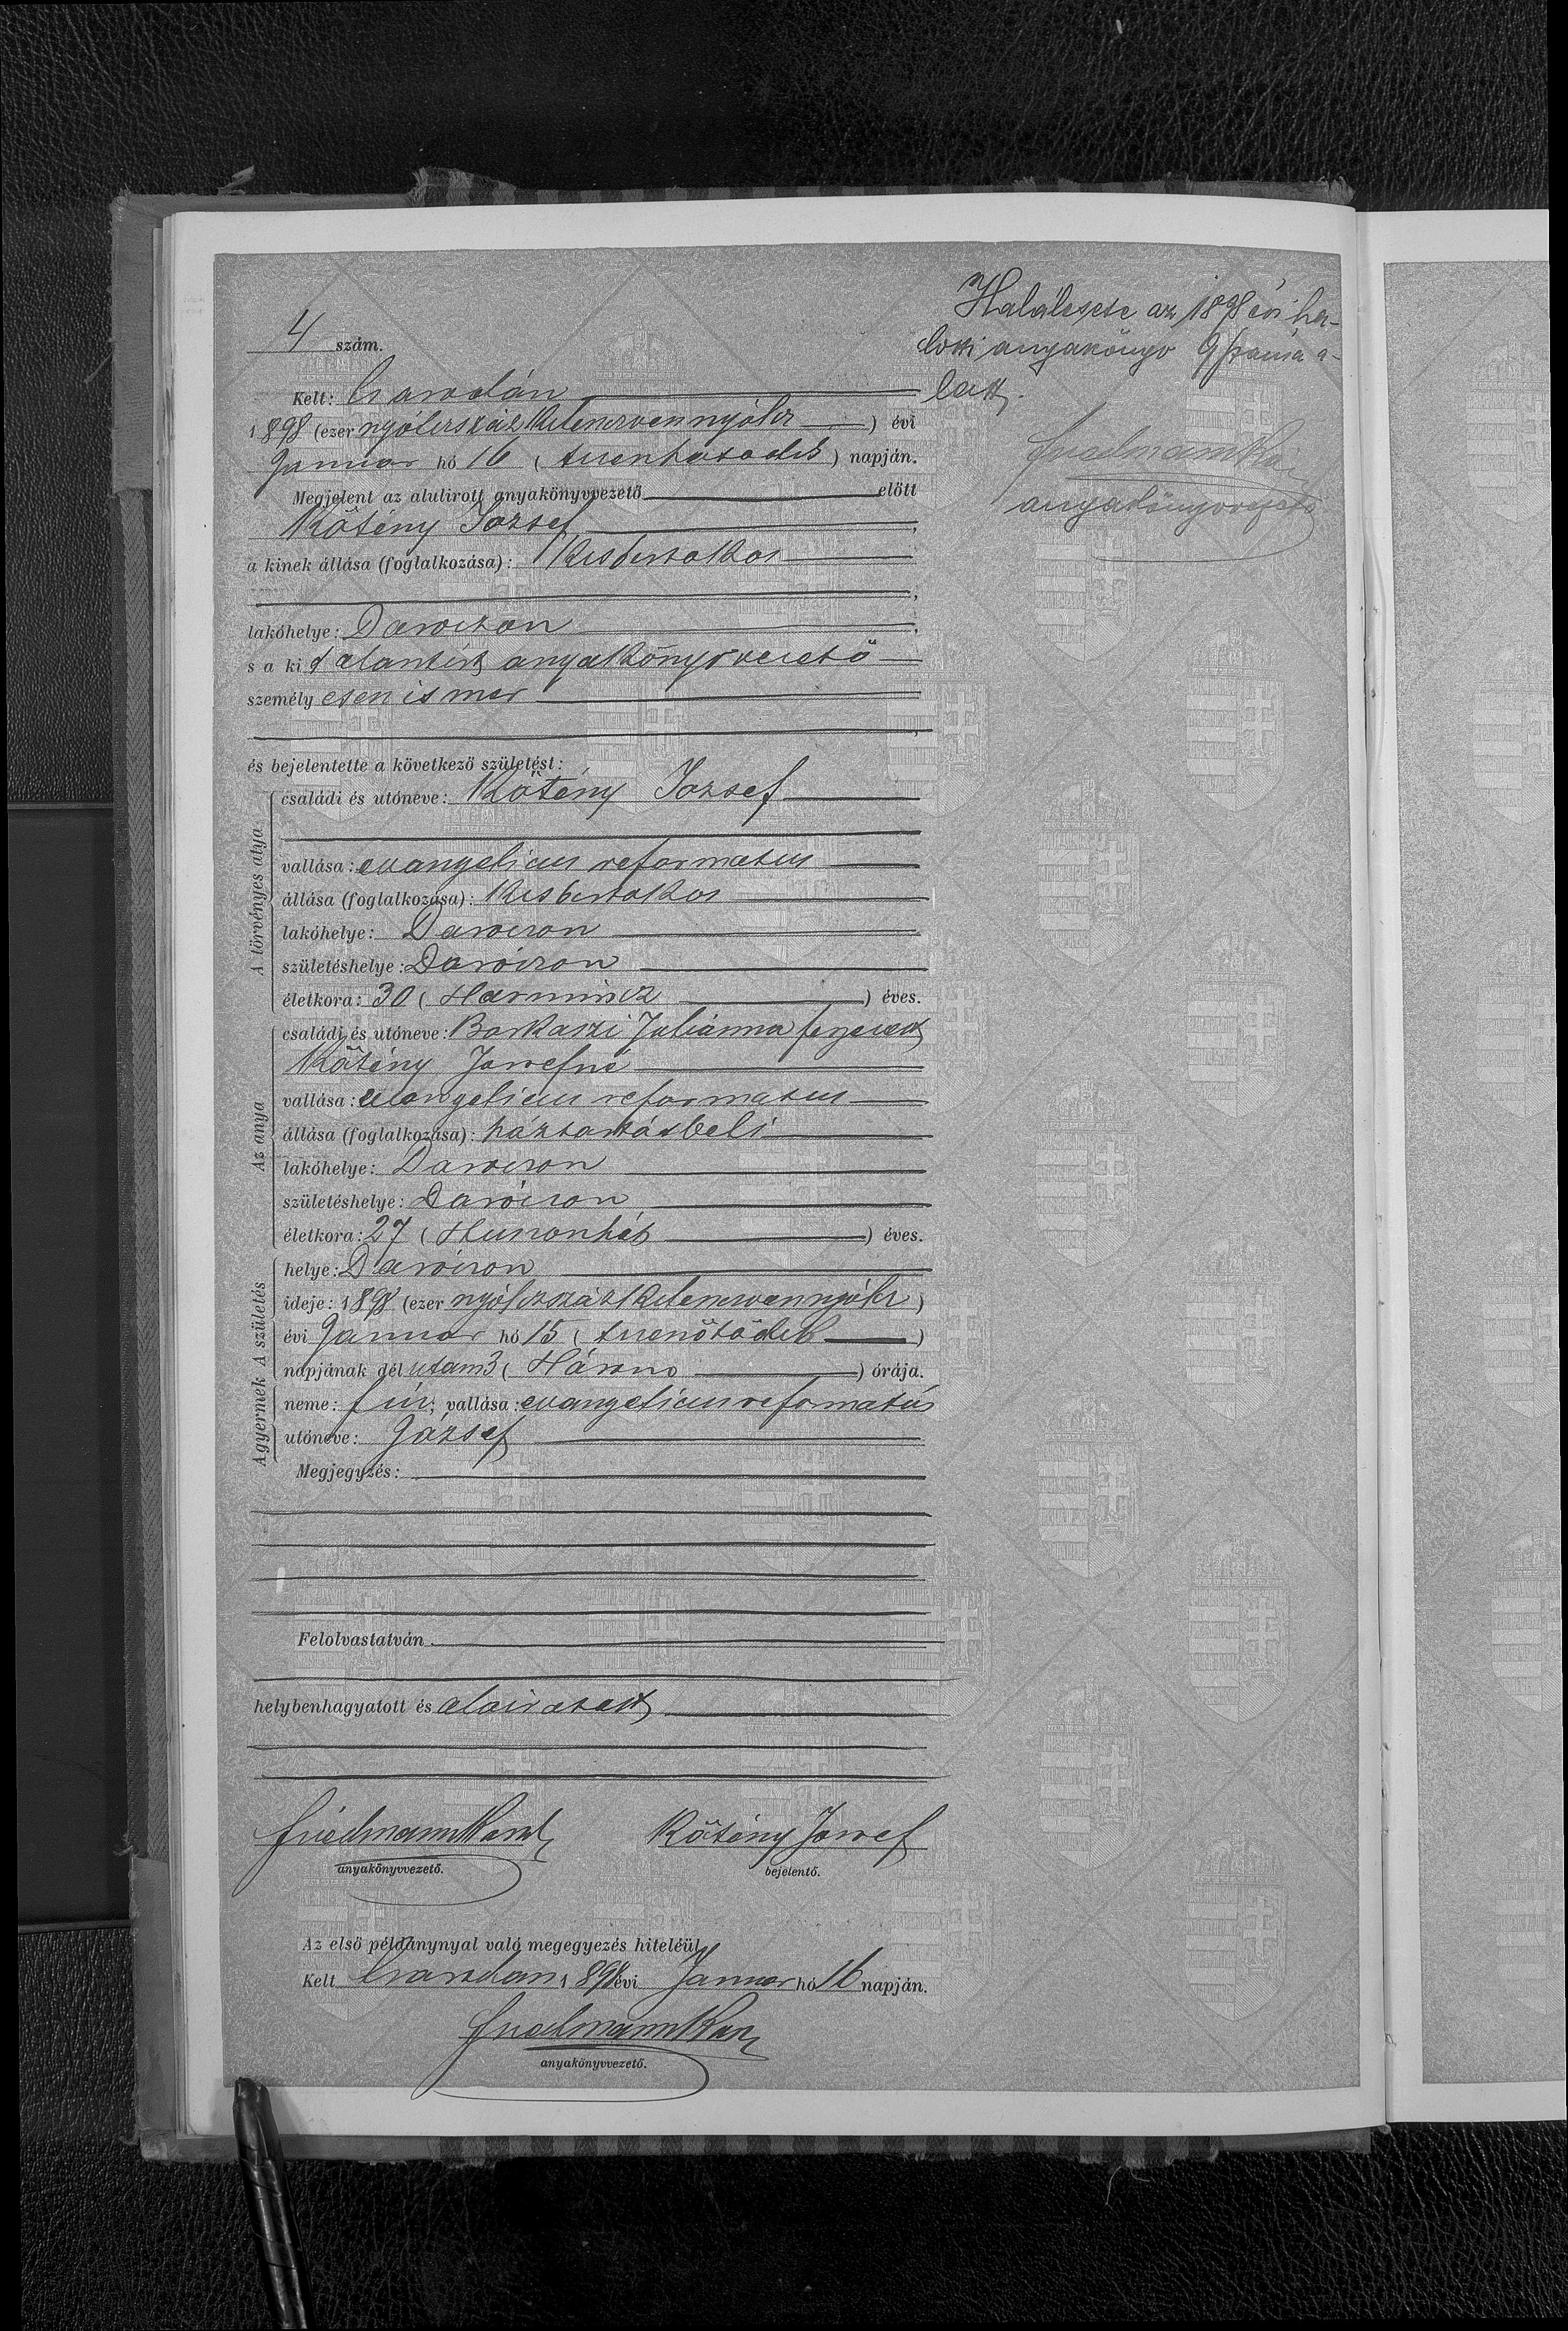 4 szám.
Kelt: Csarodán
1898 (ezer nyólczszáz kilenczvennyólcz) évi
Januar hó 16 (tizenhatodik) napján.
Megjelent az alulirott anyakönyvvezető előtt
Kötény József,
a kinek állása (foglalkozása): kisbirtokos
lakóhelye: Daróczon
s a ki t alantirt anyakönyvvezető
személy esen ismer
és bejelentette a következő születést:
A törvényes atya
családi és utóneve: Kötény József
vallása: evangelicus reformatus
állása (foglalkozása): kisbirtokos
lakóhelye: Daroczon
születéshelye: Daróczon
életkora: 30 (Harmincz) éves.
Az anya
családi és utóneve: Borkaszi Juliánna ferjezett
Kötény Jozsefné
vallása: evangelicus reformatus
állása (foglalkozása): háztartásbeli
lakóhelye: Daroczon
születéshelye: Daróczon
életkora: 27 (Huszonhét) éves.
A születés
helye: Daróczon
ideje: 1898 (ezer nyólczszáz kilenczvennyólcz)
évi Januar hó 15 (tizenötödik)
napjának dél utani 3 (Három) órája.
A gyermek
neme: fiú; vallása: evangelicus reformatus
utóneve: József
Megjegyzés:
Felolvastatván
helybenhagyatott és alairatott
Friedmann Karol Kötény Jozsef
anyakönyvvezető. bejelentő.
Az első példánynyal való megegyezés hiteléül
Kelt Csarodan 1898 évi Januar hó 16 napján.
Friedmann Kar
anyakönyvvezető.
Halálesete az 1898 évi ha-
lotti anyakönyv 9 száma a-
latt.
Friedmann Kar
anyakönyvvezető